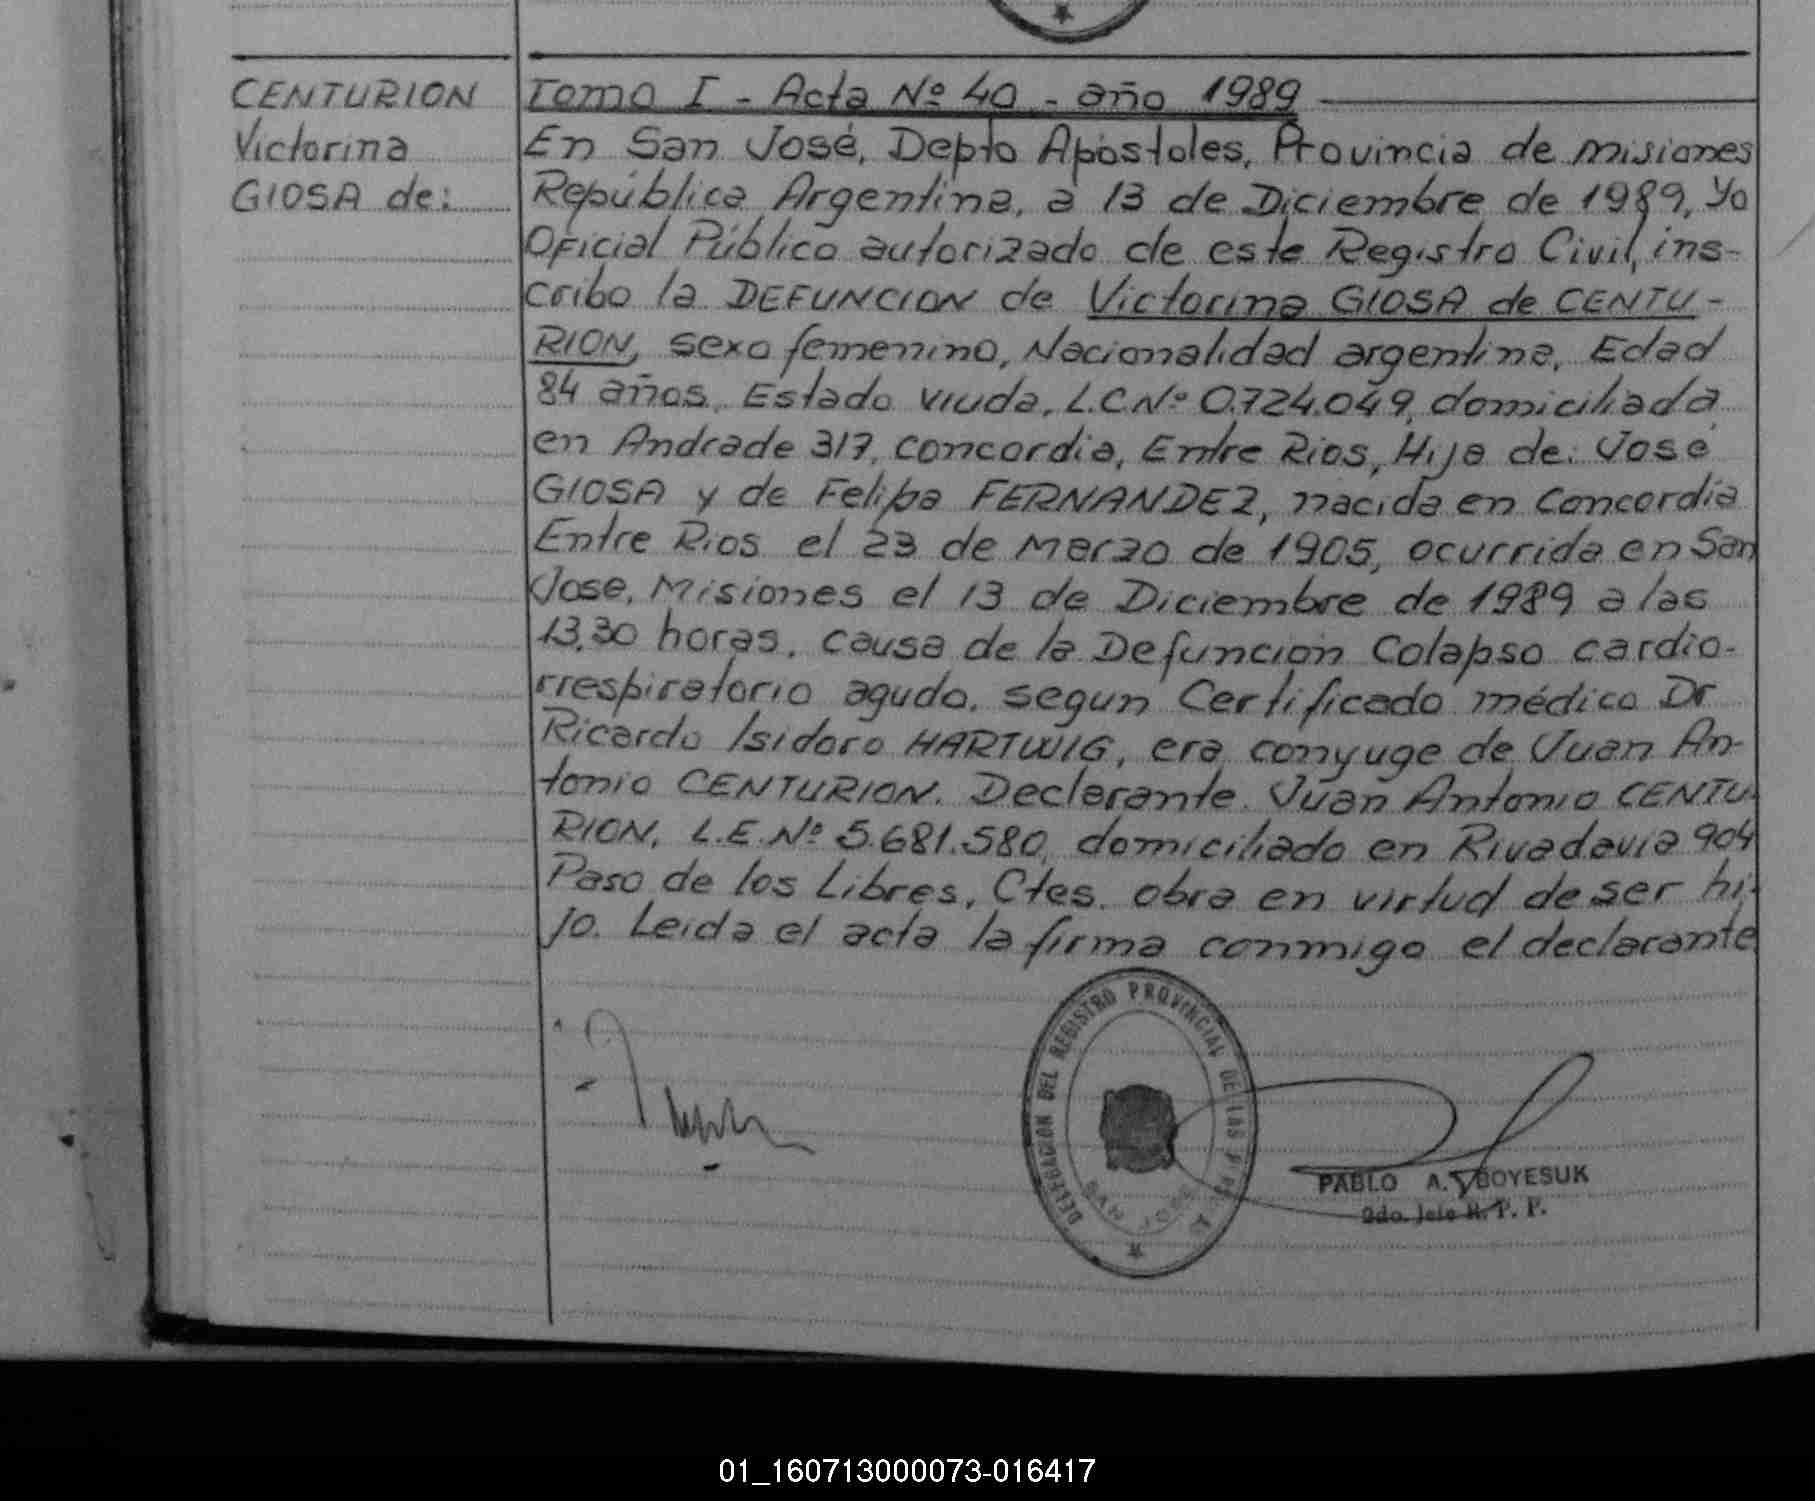 CENTURION
Victorina
GIOSA de:
Tomo I - Acta Nº 40 - año 1989
En San José, Depto Apóstoles, Provincia de Misiones
República Argentina, a 13 de Diciembre de 1989, Yo
Oficial Público autorizado de este Registro Civil, ins-
cribo la DEFUNCION de Victorina GIOSA de CENTU-
RION, sexo femenino, Nacionalidad argentina, Edad
84 años, Estado viuda, L.C.Nº 0.724.049, domiciliada
en Andrade 317, Concordia, Entre Rios, Hija de: José
GIOSA y de Felipa FERNANDEZ, nacida en Concordia
Entre Rios el 23 de Marzo de 1905, ocurrida en San
Jose, Misiones el 13 de Diciembre de 1989 a las
13,30 horas, causa de la Defuncion Colapso cardio-
rrespiratorio agudo, segun Certificado médico Dr
Ricardo Isidoro HARTWIG, era conyuge de Juan An-
tonio CENTURION. Declarante Juan Antonio CENTU-
RION, L.E.Nº 5.681.580, domiciliado en Rivadavia 904
Paso de los Libres, Ctes. obra en virtud de ser hi-
jo. Leida el acta la firma conmigo el declarante
DELEGACION DEL REGISTRO PROVINCIAL DE LAS P
SAN JOSE
PABLO A. BOYESUK
2do. Jefe R. P. P.
01_160713000073-016417